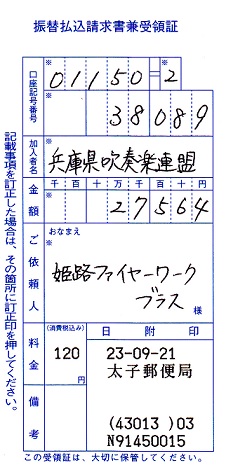 振替払込請求書兼受領証
口座記号番号
※
01150=2
※
38089
加入者名
※
兵庫県吹奏楽連盟
金額
千百十万千百十円
※
27564
ご依頼人
おなまえ
※
姫路ファイヤーワーク
ブラス
様
料金
(消費税込み)
120
円
日附印
23-09-21
太子郵便局
(43013 )03
N91450015
備考
この受領証は、大切に保管してください。
記載事項を訂正した場合は、その箇所に訂正印を押してください。